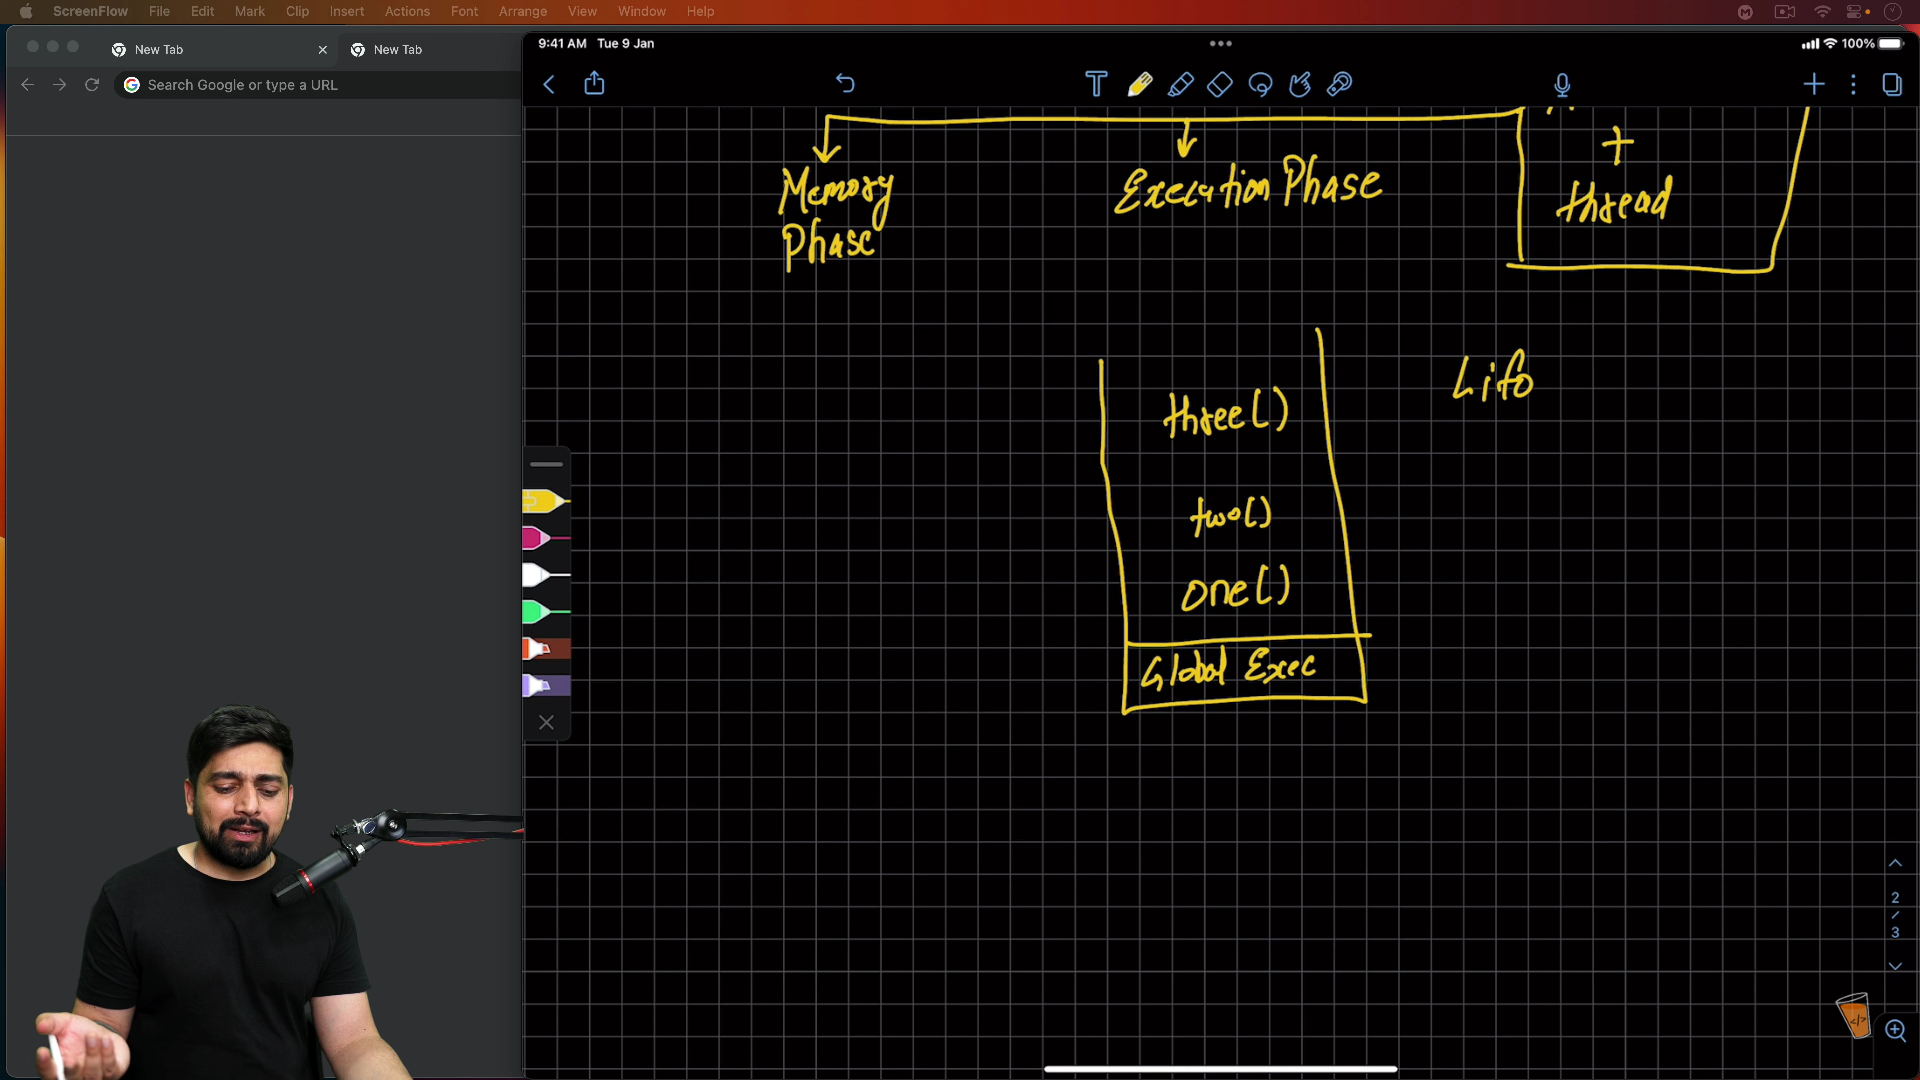 ScreenFlow File Edit Mark Clip Insert Actions Font Arrange View Window Help
New Tab
New Tab
Search Google or type a URL
9:41 AM Tue 9 Jan
100%
+
thread
Memory
Phase
Execution Phase
Lifo
three()
two()
one()
Global Exec
2
/
3